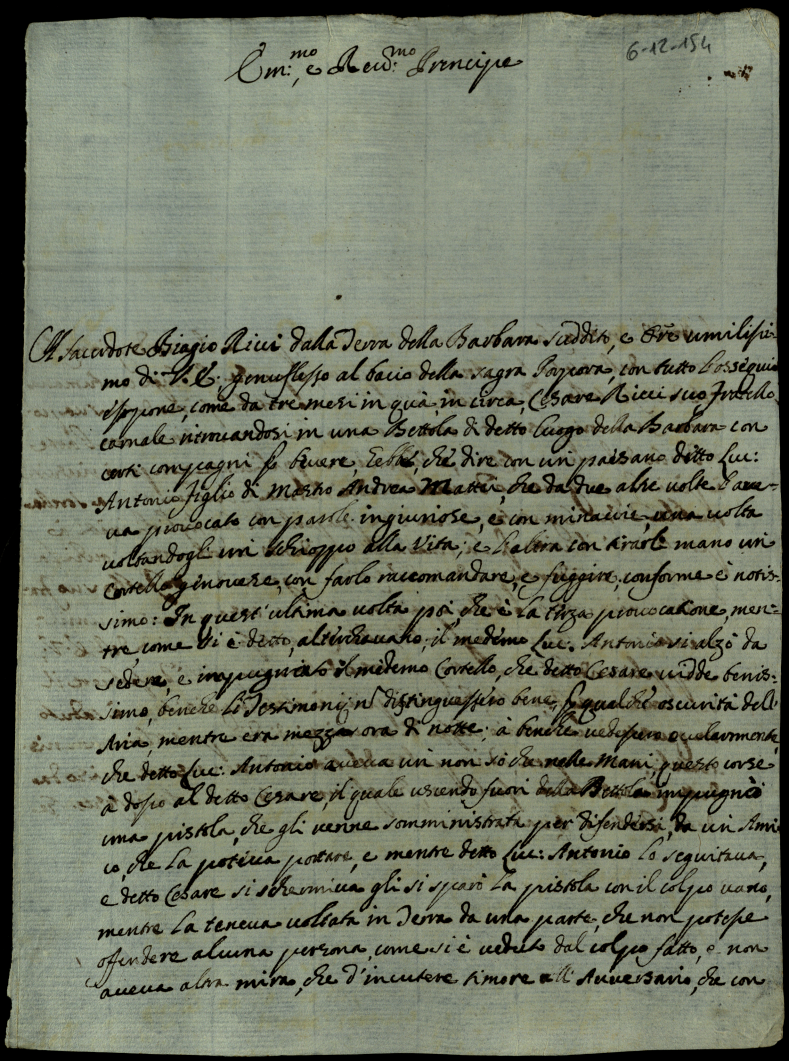 6-12-154
Em:mo, e Reud:mo Prencipe
Il Sacerdote Biagio Ricci dalla Terra della Barbara suddito, e Ore umilissi-
mo di V. E. genuflesso al bacio della sagra Porpora, con tutto l'ossequio
espone, come da tre mesi in quà, in circa, Cesare Ricci suo Fratello
carnale ritrovandosi in una Bettola di detto luogo della Barbara con
certi compagni p bevere, ebbe, che dire con un paesano detto Luc:
Antonio figlio di Mastro Andrea Mattei, che da due altre volte l'ave-
va provocato con parole ingiuriose, e con minaccie, una volta
voltandogli un schioppo alla Vita, e l'altra con tirarle mano un
Cortello genovese, con farlo raccomandare, e fuggire, conforme è notis-
simo: In quest'ultima volta poi, che è la terza provocatione, men-
tre come si è detto, altercavano, il medemo Luc: Antonio si alzò da
sedere, e inpugniato il medemo Cortello, che detto Cesare vidde benis-
simo, benche li Testimonij n distinguessero bene, p qualche oscurità dell'
Aria, mentre era mezza ora di notte; à benche vedessero oculatamente,
che detto Luc: Antonio aveva un non sò che nelle Mani, questo corse
a dosso al detto Cesare, il quale uscendo fuori della Bettola impugniò
una pistola, che gli venne somministrata per difendersi, da un Ami
co, che la poteva portare, e mentre detto Luc: Antonio lo seguitava,
e detto Cesare si schermiva gli si sparò la pistola con il colpo vano,
mentre la teneva voltata in Terra da una parte, che non potesse
offendere alcuna persona, come si è veduto dal colpo fatto, e non
aveva altra mira, che d'incutere timore all'Avversario, che con